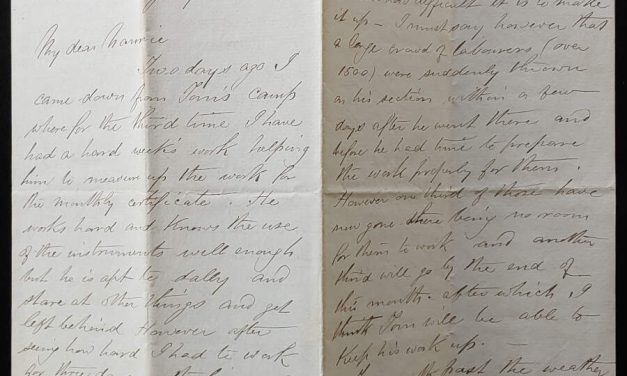 My dear Mamie
Two days ago I
came down from Tom's camp
where for the third time I have
had a hard week's work helping
him to measure up the work for
the monthly certificate. He
works hard and knows the use
of the instruments well enough
but he is apt to dally and
stare at other things and get
left behind However after
seeing how hard I had to work
difficult it is to make
it up — I must say however that
a large crowd of labourers (over
1500) were suddenly thrown
on his section within a few
days after he went there and
before he had time to prepare
the work properly for them.
However one third of those have
now gone there being no room
for them to work and another
third will go by the end of
this month. after which, I
think Tom will be able to
keep his work up. —
past the weather